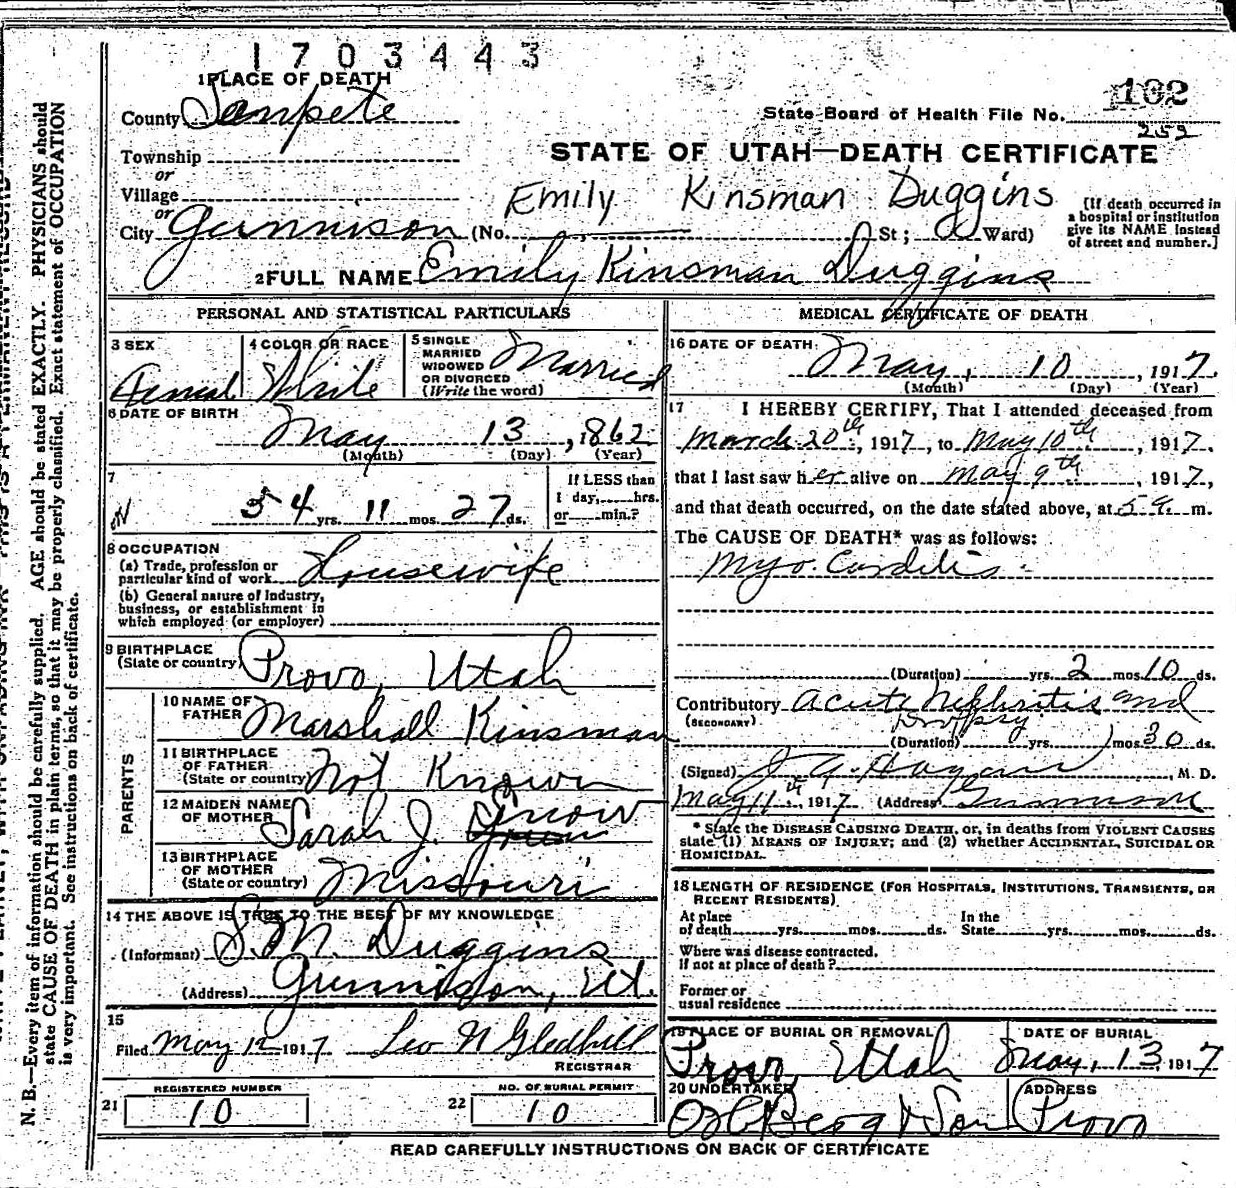 1703443
1 PLACE OF DEATH
County Sanpete
Township
or
Village
or
City Gunnison (No. St; Ward)
State Board of Health File No. 102
252
STATE OF UTAH—DEATH CERTIFICATE
Emily Kinsman Duggins
[If death occurred in
a hospital or institution
give its NAME instead
of street and number.]
2 FULL NAME Emily Kinsman Duggins
PERSONAL AND STATISTICAL PARTICULARS
3 SEX
Femal
4 COLOR OR RACE
White
5 SINGLE
MARRIED
WIDOWED
OR DIVORCED
(Write the word)
Married
6 DATE OF BIRTH
May 13, 1862
(Month) (Day) (Year)
7
54 yrs. 11 mos. 27 ds.
If LESS than
1 day, hrs.
or min.?
8 OCCUPATION
(a) Trade, profession or
particular kind of work Housewife
(b) General nature of Industry,
business, or establishment in
which employed (or employer)
9 BIRTHPLACE
(State or country) Provo, Utah
PARENTS
10 NAME OF
FATHER Marshall Kinsman
11 BIRTHPLACE
OF FATHER
(State or country) Not Known
12 MAIDEN NAME
OF MOTHER Sarah J.
13 BIRTHPLACE
OF MOTHER
(State or country) Missouri
14 THE ABOVE IS TRUE TO THE BEST OF MY KNOWLEDGE
(Informant) S. M. Duggins
(Address) Gunnison, Ut.
15
Filed May 12 1917 Leo N Gledhill
REGISTRAR
REGISTERED NUMBER
21 10
NO. OF BURIAL PERMIT
22 10
MEDICAL CERTIFICATE OF DEATH
16 DATE OF DEATH
May, 10, 1917.
(Month) (Day) (Year)
17 I HEREBY CERTIFY, That I attended deceased from
March 20th, 1917, to May 10th, 1917.
that I last saw her alive on May 9th, 1917,
and that death occurred, on the date stated above, at 5 a. m.
The CAUSE OF DEATH* was as follows:
Myo. Carditis
(Duration) yrs. 2 mos. 10 ds.
Contributory Acute Nephritis and
(SECONDARY) Dropsy
(Duration) yrs. mos. 30 ds.
(Signed) J. A. Hagan, M. D.
May 11th, 1917 (Address) Gunnison
* State the DISEASE CAUSING DEATH, or, in deaths from VIOLENT CAUSES
state (1) MEANS OF INJURY; and (2) whether ACCIDENTAL, SUICIDAL OR
HOMICIDAL.
18 LENGTH OF RESIDENCE (FOR HOSPITALS, INSTITUTIONS, TRANSIENTS, OR
RECENT RESIDENTS).
At place
of death yrs. mos. ds.
In the
State yrs. mos. ds.
Where was disease contracted,
if not at place of death?
Former or
usual residence
19 PLACE OF BURIAL OR REMOVAL
Provo, Utah
DATE OF BURIAL
May, 13, 1917
20 UNDERTAKER
Berg & Son
ADDRESS
Provo
READ CAREFULLY INSTRUCTIONS ON BACK OF CERTIFICATE
N. B.—Every item of information should be carefully supplied. AGE should be stated EXACTLY. PHYSICIANS should
state CAUSE OF DEATH in plain terms, so that it may be properly classified. Exact statement of OCCUPATION
is very important. See instructions on back of certificate.